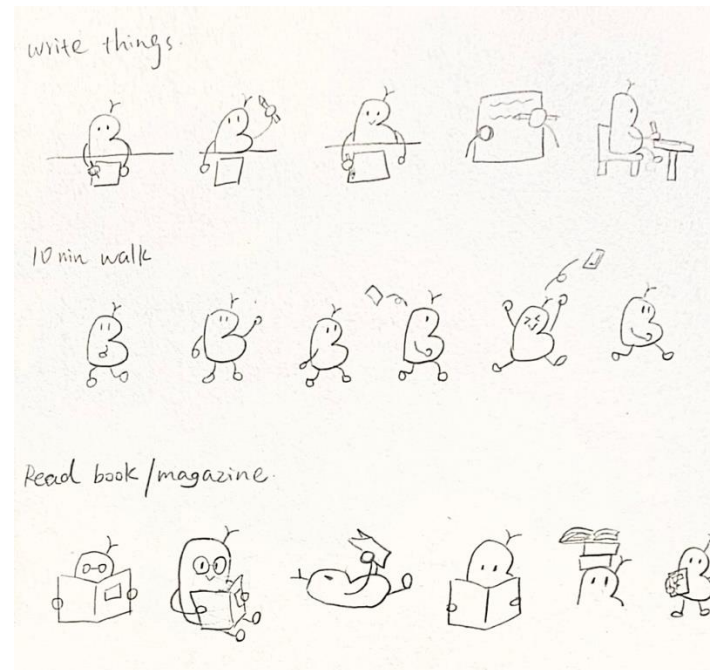 write things.
10 min walk
Read book/magazine.